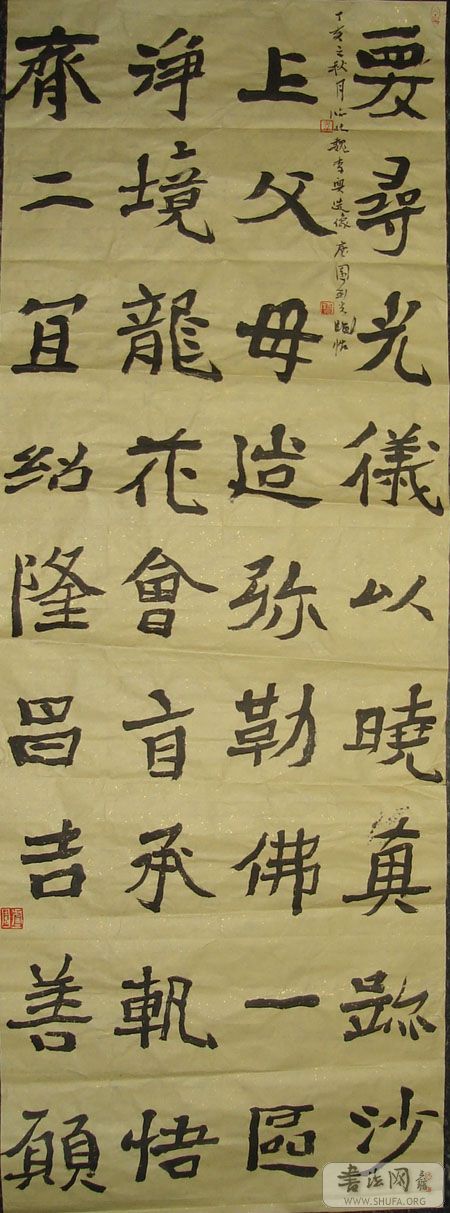 要尋光儀以曉真跡沙
上父母造弥勒佛一區
淨境龍花會盲承軌悟
齊二宜紹隆昌吉善願
丁亥之秋月临北魏李興造像
書法网
WWW.SHUFA.ORG